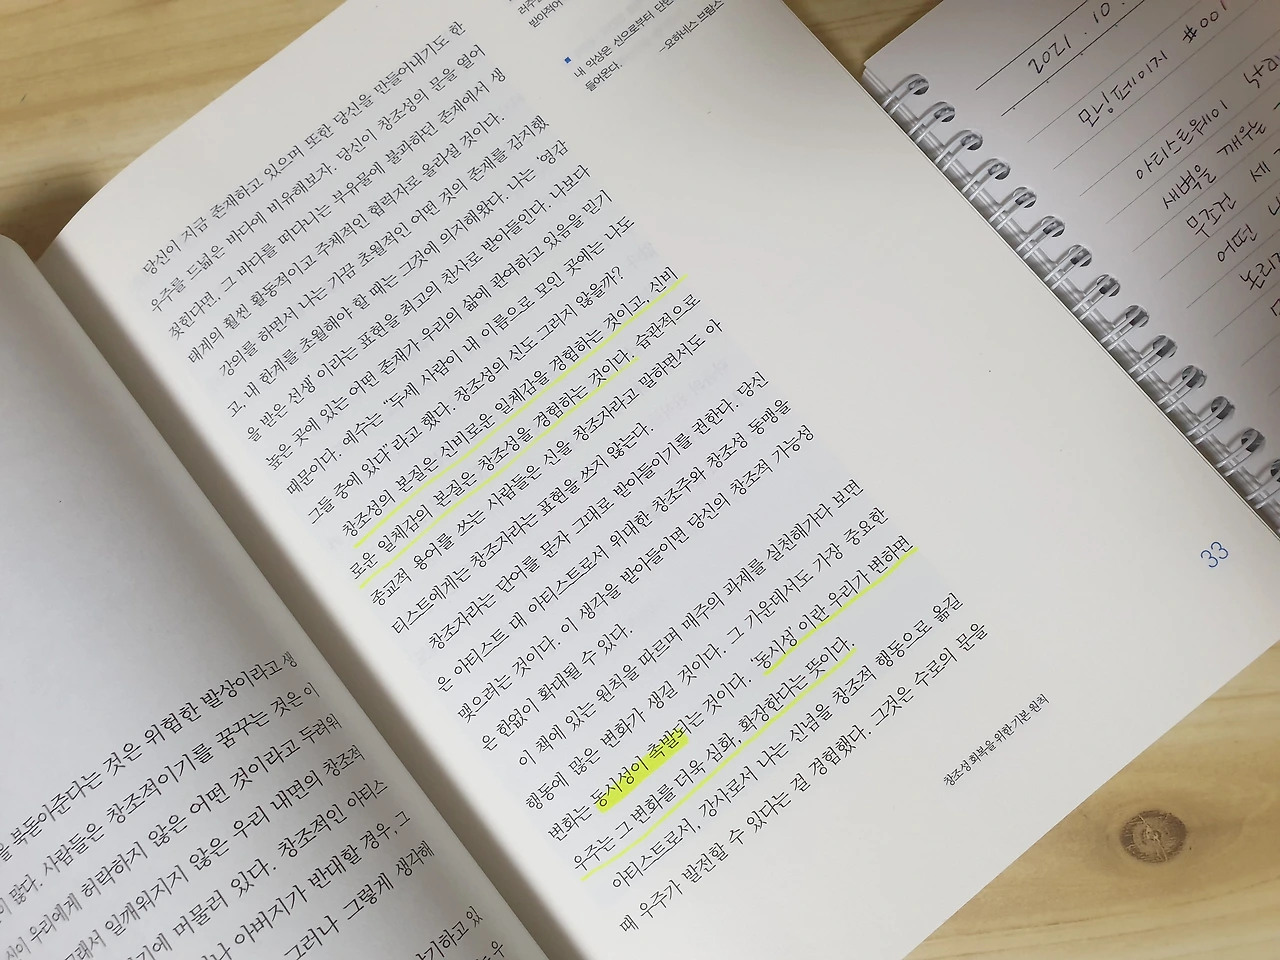 을 북돋아준다는 것은 위험한 발상이라고 생
많다. 사람들은 창조적이기를 꿈꾸는 것은 이
우리에게 허락하지 않은 어떤 것이라고 두려워
그래서 일깨워지지 않은 우리 내면의 창조적
기에 머물러 있다. 창조적인 아티스
나 아버지가 반대할 경우, 그
그러나 그렇게 생각해
하고 있
당신이 지금 존재하고 있으며 또한 당신을 만들어내기도 한
우주를 드넓은 바다에 비유해보자. 당신이 창조성의 문을 열어
젖힌다면, 그 바다를 떠다니는 부유물에 불과하던 존재에서 생
태계의 훨씬 활동적이고 주체적인 협력자로 올라설 것이다.
강의를 하면서 나는 가끔 초월적인 어떤 것의 존재를 감지했
고, 내 한계를 초월해야 할 때는 그것에 의지해왔다. 나는 '영감
을 받은 선생'이라는 표현을 최고의 찬사로 받아들인다. 나보다
높은 곳에 있는 어떤 존재가 우리의 삶에 관여하고 있음을 믿기
때문이다. 예수는 "두세 사람이 내 이름으로 모인 곳에는 나도
그들 중에 있다"라고 했다. 창조성의 신도 그러지 않을까?
창조성의 본질은 신비로운 일체감을 경험하는 것이고, 신비
로운 일체감의 본질은 창조성을 경험하는 것이다. 습관적으로
종교적 용어를 쓰는 사람들은 신을 창조자라고 말하면서도 아
티스트에게는 창조자라는 표현을 쓰지 않는다.
창조자라는 단어를 문자 그대로 받아들이기를 권한다. 당신
은 아티스트 대 아티스트로서 위대한 창조주와 창조성 동맹을
맺으려는 것이다. 이 생각을 받아들이면 당신의 창조적 가능성
은 한없이 확대될 수 있다.
이 책에 있는 원칙을 따르며 매주의 과제를 실천해가다 보면
행동에 많은 변화가 생길 것이다. 그 가운데서도 가장 중요한
변화는 동시성이 촉발되는 것이다. '동시성'이란 우리가 변하면
우주는 그 변화를 더욱 심화, 확장한다는 뜻이다.
아티스트로서, 강사로서 나는 신념을 창조적 행동으로 옮길
때 우주가 발전할 수 있다는 걸 경험했다. 그것은 수로의 문을
받아적어
내 악상은 신으로부터 단번
들어온다.
—요하네스 브람스
창조성 회복을 위한 기본 원칙
33
2021. 10.
모닝페이지 #001
아티스트웨이
새벽을 깨우는
무조건 세
어떤